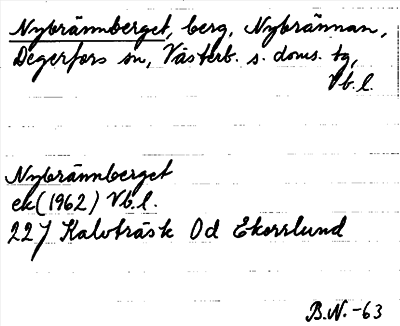 Nybrännberget, berg, Nybrännan,
Degerfors sn, Västerb. s. doms. tg,
Vb. l.
Nybrännberget
ek (1962) Vb. l.
22J Kalvträsk Od Ekorrlund
B.N. -63